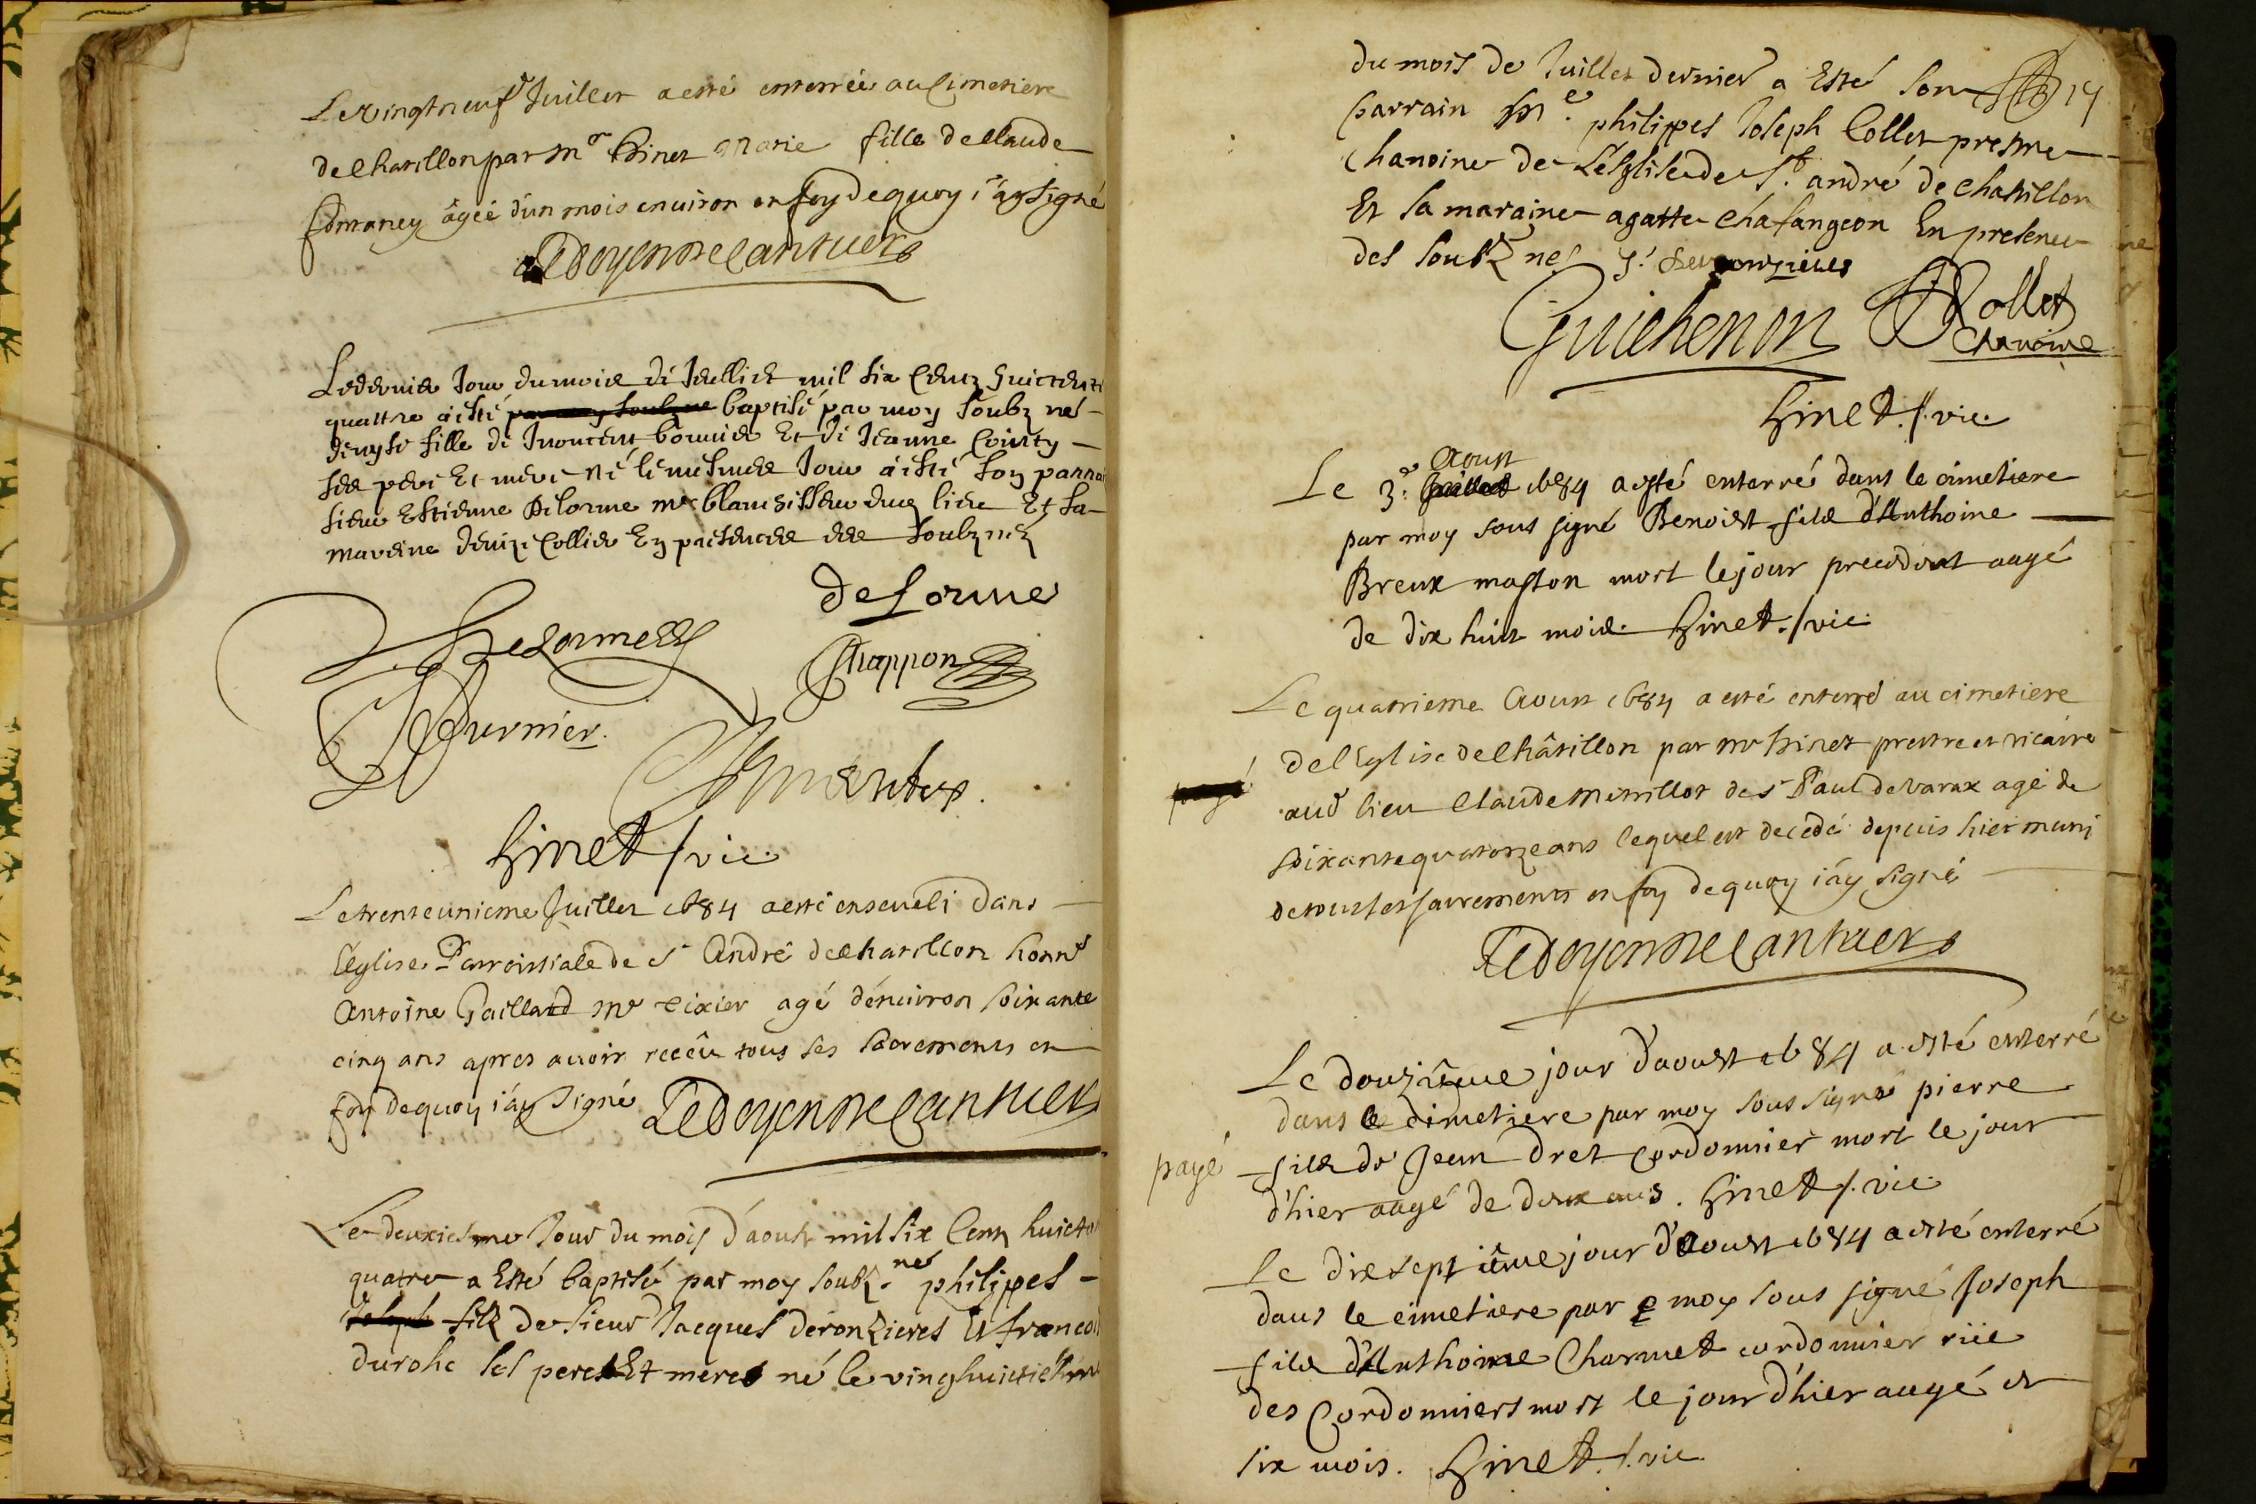 Le vingtneufe Juillet a esté enterrée au Cimetiere
de Chatillon par mr hinet Marie fille de Claude
âgée d'un mois environ en foy de quoy i'ay signé
Ledoyen mecantuers
Le dernier Jour du mois de Jeulliet mil six Centz huictente
quattre a esté baptisé par moy soubz né
denyse fille de Inoncent bournier Et de Jeanne Cointy
ses pere Et mere né le mesmes Jour a esté son parrai
sieur Estienne Delorme mr blanchisseur dud lieu Et sa
mareine denize Collier En presences des soubznéz
deLorme
Delormess
Chappon
Burnier.
hinet /vic.
Le trente unieme Juillet 1684 a esté enseveli dans
l'Eglise Parroissiale de St André de Chatillon honne
Antoine Gaillard mr tixier agé d'environ soixante
cinq ans apres avoir reçeu tous ses sacrements en
foy de quoy i'ay signé Ledoyen mecantuers
Le deuxiesme Jour du mois d'aoust mil six Centz huicta
quatre a Esté baptisé par moy soubz.né philipes
Joseph filz de sieur Jacques deronzieres Et francoi
durohc ses peres Et meres né le vinghuictiesme
du mois de Juillet dernier a Esté son 14
parrain Me. philippes Joseph Collet prestre
chanoine de L'esglise de St. andré de chastillon
Et sa maraine agatte chafangeon En presence
des soubz nes
Guichenon Collet
chanoine
hinet ./.vic
Aoust
Le 3.e Juillet 1684 a esté enterré dans le cimetiere
par moy sous signé Benoist fils d'Anthoine
Breux masson mort le jour precedent aagé
de dix huit mois. hinet ./vic.
Le quatrieme Aoust 1684 a esté enterré au cimetiere
de l'Eglise de Châtillon par mr hinet prestre et vicaire
payé
aud lieu Claude Merillot de St Paul de Varax agé de
soixante quatorze ans lequel est decedé depuis hier muni
de tous les sacrements en foy de quoy i'ay signé
Ledoyen mecantuers
Le douziême jour d'aoust 1684 a esté enterré
dans le cimetiere par moy sous signé pierre
payé
fils de Jean Dret cordonnier mort le jour
d'hier aagé de deux ans. hinet ./.vic.
Le dix septiême jour d'aoust 1684 a esté enterré
dans le cimetiere par moy sous signé Joseph
fils d'Anthoine Charmet cordonnier rüe
des Cordonniers mort le jour d'hier aagé de
six mois. hinet ./.vic